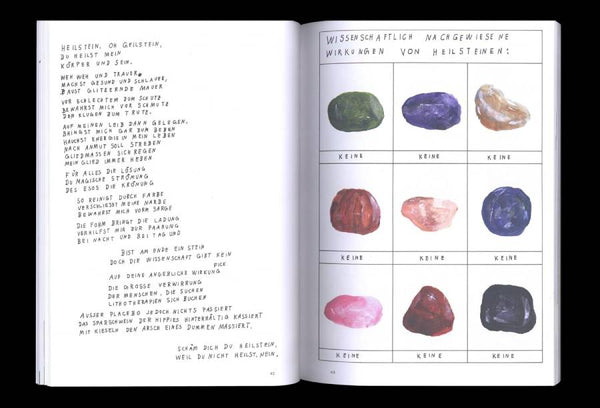 HEILSTEIN, OH GEILSTEIN,
DU HEILST MEIN
KÖRPER UND SEIN.
WEH WEH UND TRAUER,
MACHST GESUND UND SCHLAUER,
BAUST GLITZERNDE MAUER
VOR SCHLECHTEM ZUM SCHUTZ
BEWAHRST MICH VOR SCHMUTZ
DER KLUGEN ZUM TRUTZ.
AUF MEINEN LEIB DANN GELEGEN,
BRINGST MICH GAR ZUM BEBEN
HAUCHST ENERGIE IN MEIN LEBEN
NACH ANMUT SOLL STREBEN
GLIEDMASSEN SICH REGEN
MEIN GLIED IMMER HEBEN
FÜR ALLES DIE LÖSUNG
DU MAGISCHE STRÖMUNG
DES ESOS DIE KRÖNUNG
SO REINIGT DURCH FARBE
VERSCHLIESST MEINE NARBE
BEWAHRST MICH VORM SARGE
DIE FORM BRINGT DIE LADUNG
VERHILFST MIR ZUR PAARUNG
BEI NACHT UND BEI TAG UND
BIST AM ENDE EIN STEIN
DOCH DIE WISSENSCHAFT GIBT KEIN
PICK
AUF DEINE ANGEBLICHE WIRKUNG
DIE GROSSE VERWIRRUNG
DER MENSCHEN, DIE SUCHEN
LITHOTHERAPIEN SICH BUCHEN
AUSSER PLACEBO JEDOCH NICHTS PASSIERT
DAS SPARSCHWEIN DER HIPPIES HINTERHÄLTIG KASSIERT
MIT KIESELN DEN ARSCH EINES DUMMEN MASSIERT.
SCHÄM DICH DU HEILSTEIN,
WEIL DU NICHT HEILST, NEIN.
42
WISSENSCHAFTLICH NACHGEWIESENE
WIRKUNGEN VON HEILSTEINEN:
KEINE KEINE KEINE
KEINE KEINE KEINE
KEINE KEINE KEINE
43